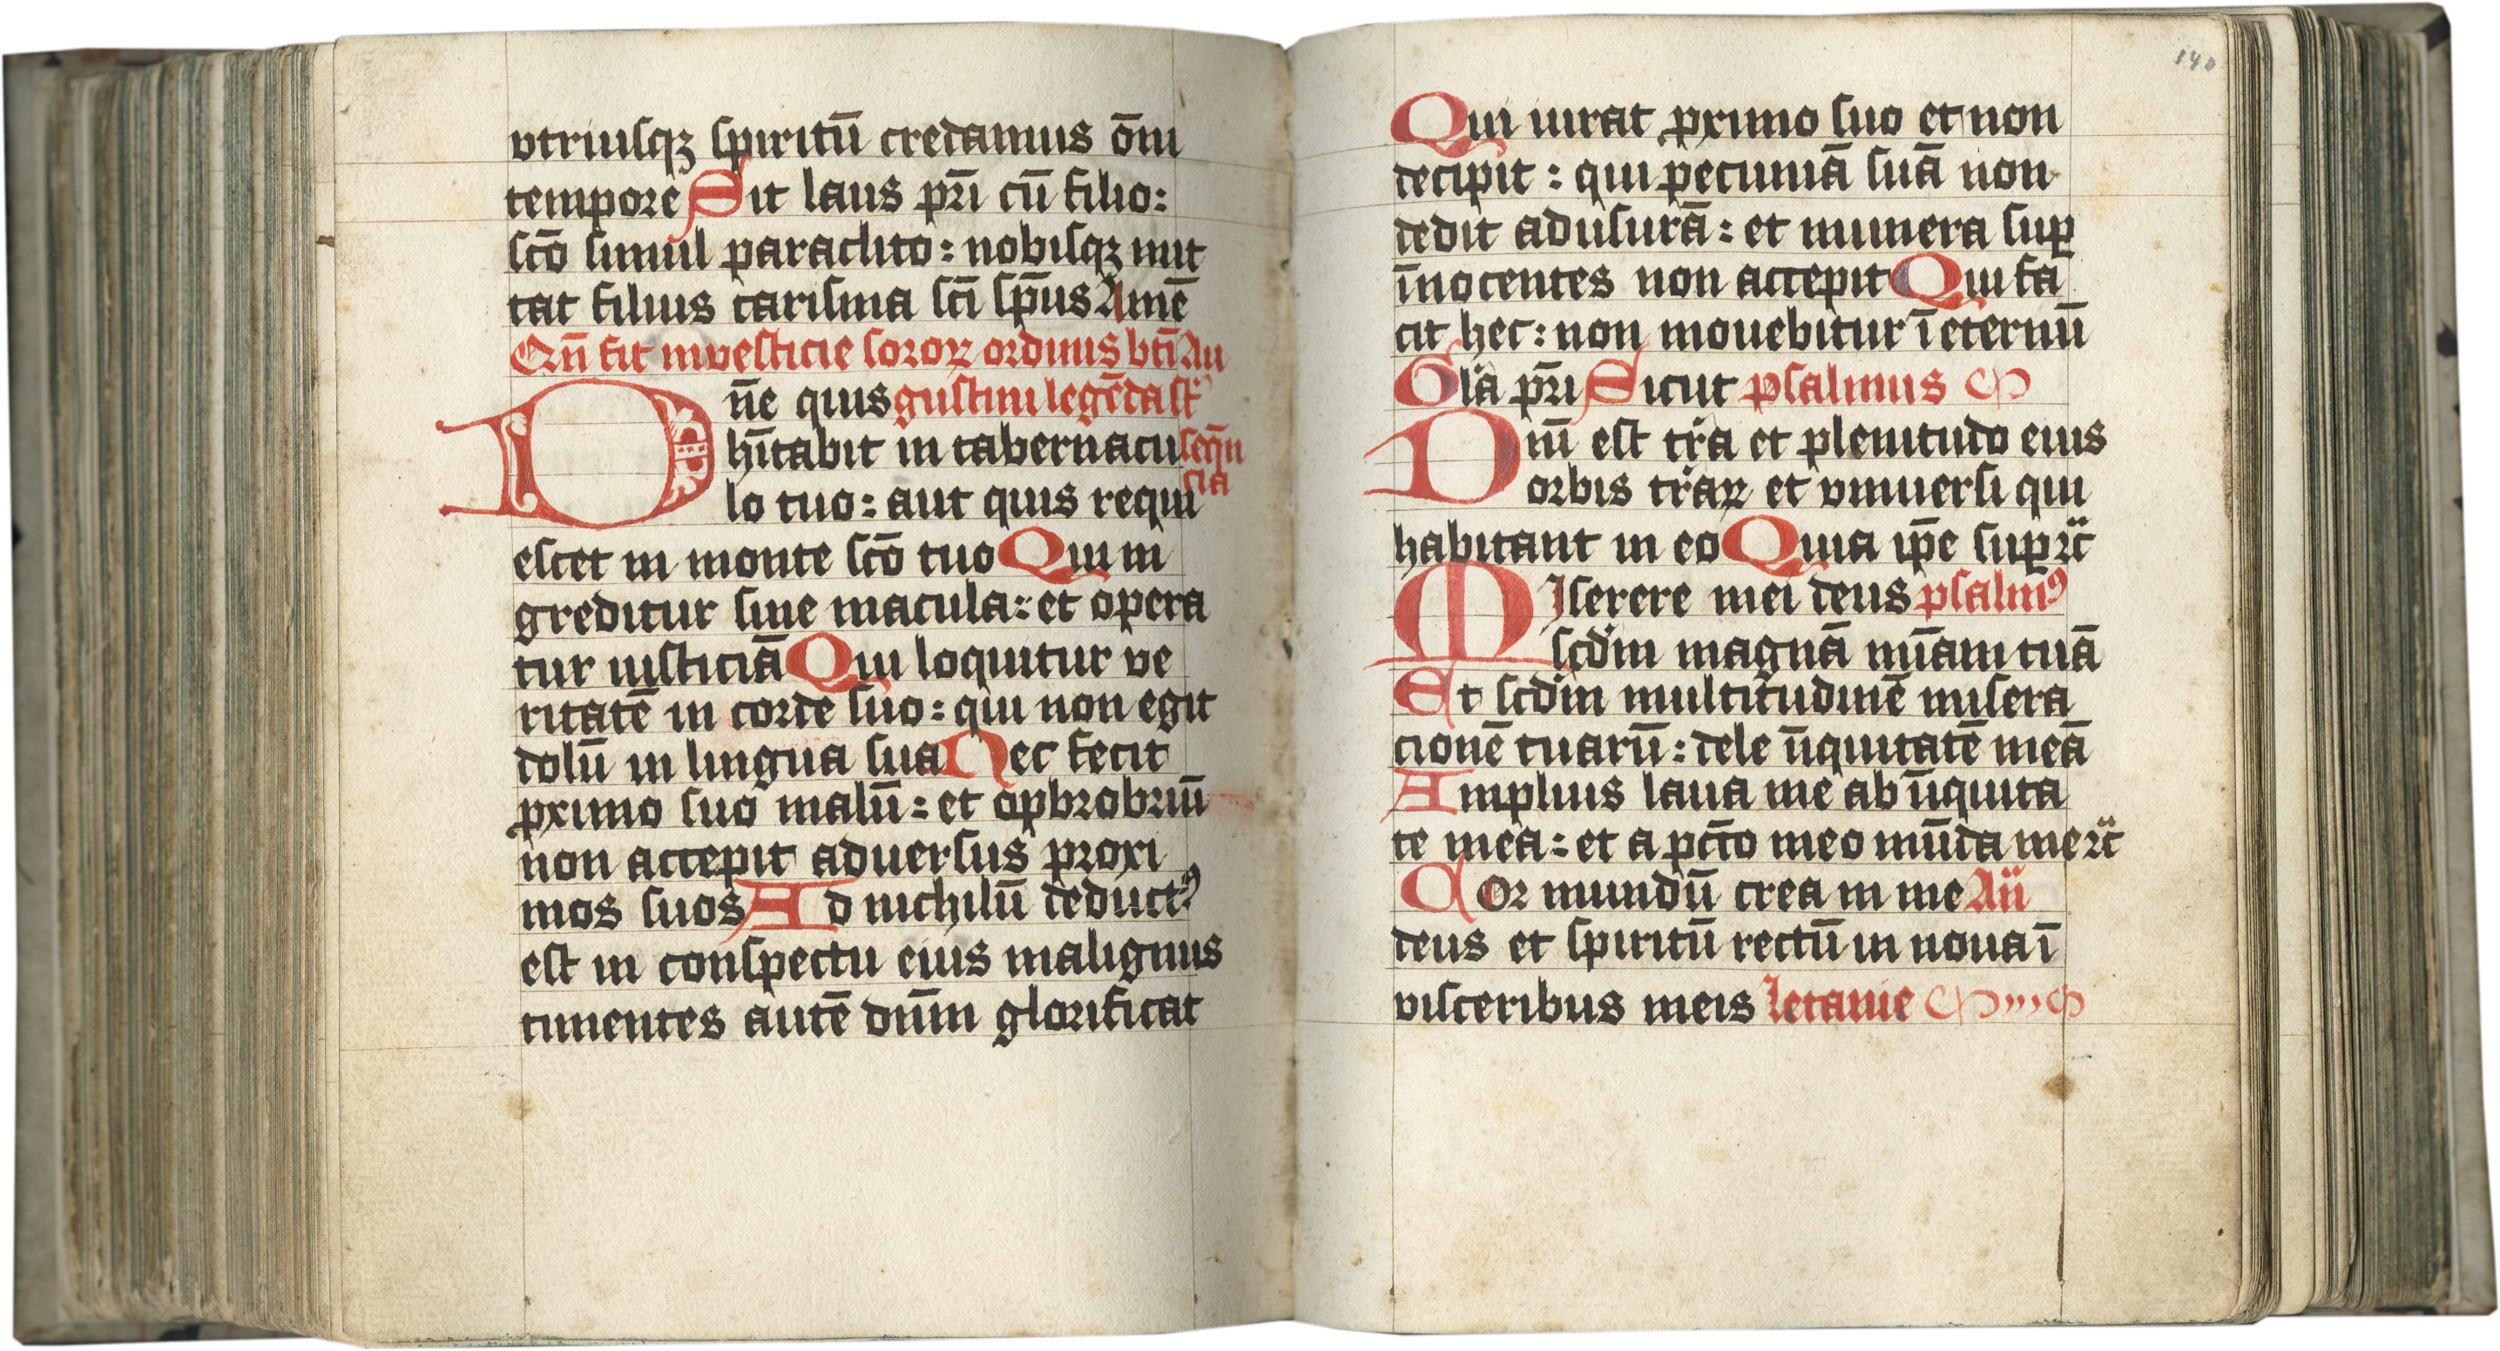 vtriusqꝫ spiritū credamus om̄i
tempore Sit laus pr̄i cū filio:
sctō simul paraclito: nobisqꝫ mit
tat filius carisma scī sp̄us Amē
Qn̄ fit inuesticie soroꝝ ordinis bt̄i Au
n̄e quis gustini legēda st̄
D
hītabit in tabernacu seqn̄
cia
lo tuo: aut quis requi
escet in monte sctō tuo Qui in
greditur sine macula: et opera
tur iusticiā Qui loquitur ve
ritatē in corde suo: qui non egit
dolū in lingua sua Nec fecit
ꝓximo suo malū: et opbrobriū
non accepit aduersus proxi
mos suos Ad nichilū deductꝰ
est in conspectu eius malignus
timentes autē dn̄m glorificat
140
Qui iurat ꝓximo suo et non
decipit: qui pecuniā suā non
dedit ad usurā: et munera suꝑ
īnocentes non accepit Qui fa
cit hec: non mouebitur ī eternū
Glā pr̄i Sicut psalmus
Dn̄i est tr̄a et plenitudo eius
orbis tr̄aꝝ et vniuersi qui
habitant in eo Quia ip̄e suꝑ ꝛc̄
Miserere mei deus psalmꝰ
scd̄m magnā mīam tuā
Et scd̄m multitudinē misera
cionē tuarū: dele īiquitatē meā
Amplius laua me ab īiquita
te mea: et a pctō meo mūda me ꝛc̄
Cor mundū crea in me An̄
deus et spiritū rectū in noua ī
visceribus meis letanie